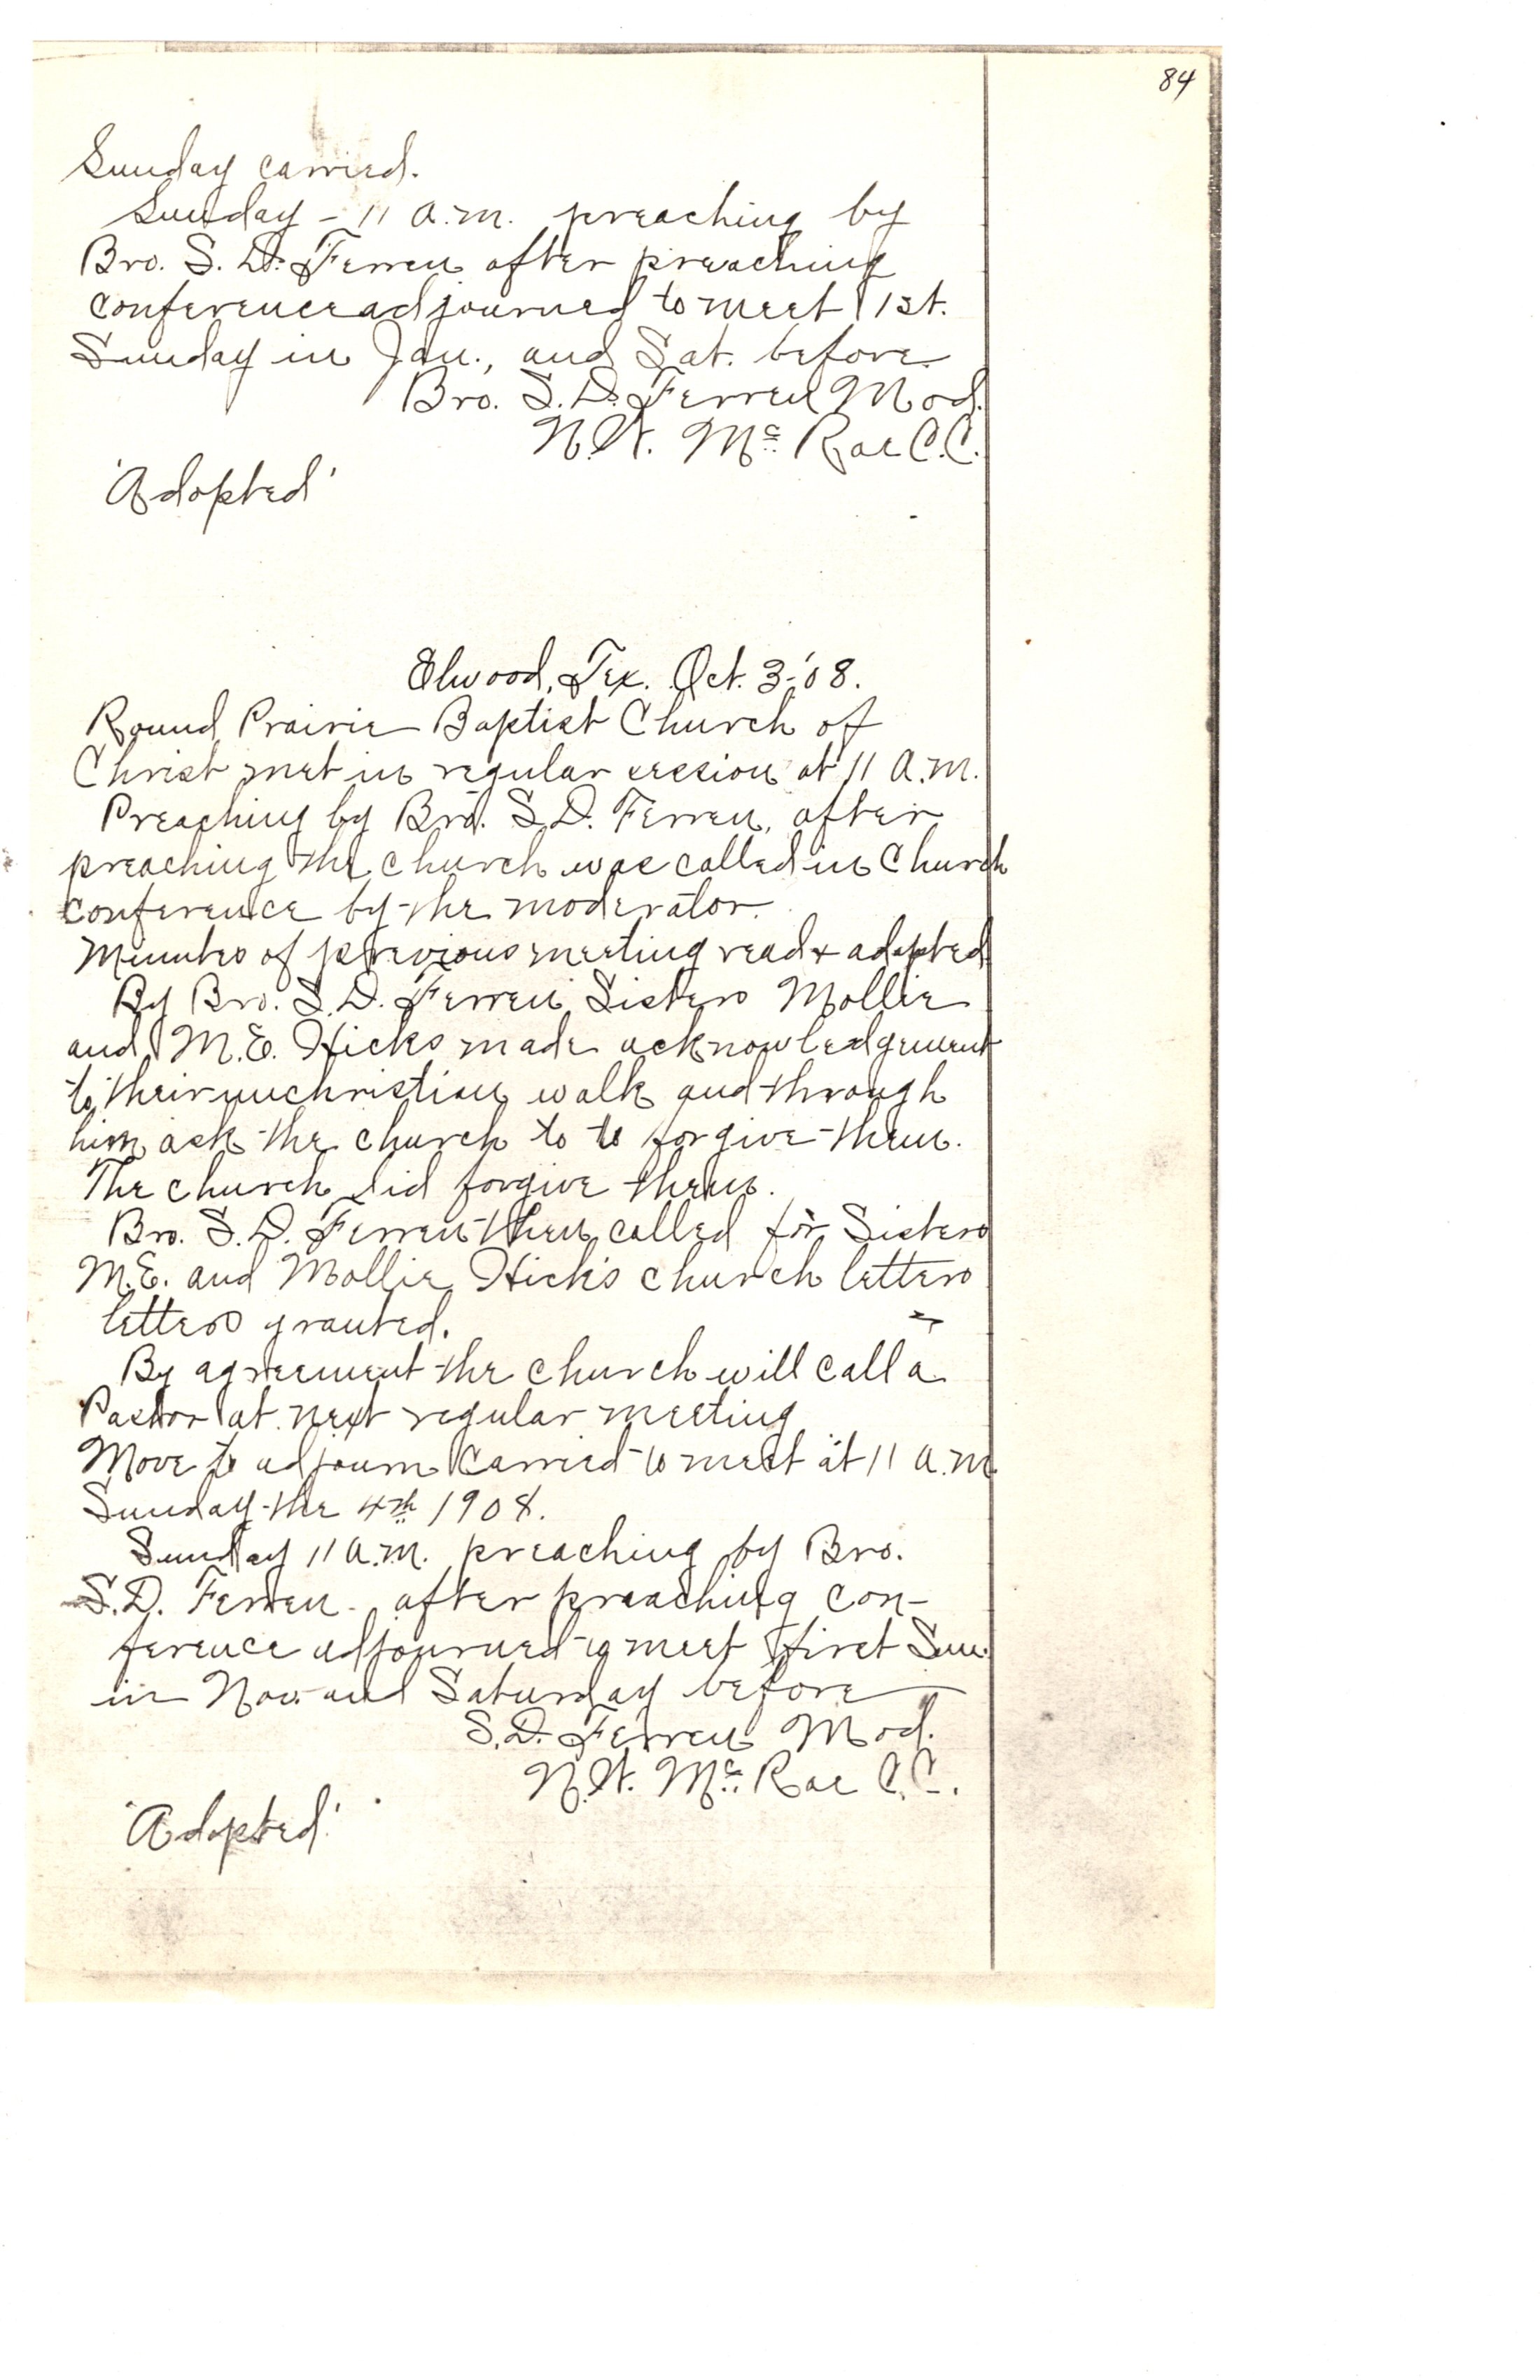 84
Sunday carried.
Sunday - 11 a.m. preaching by
Bro. S. D. Ferren after preaching
conference adjourned to meet 1st.
Sunday in Jan., and Sat. before
Bro. S. D. Ferren Mod.
N.W. Mc Rae C.C.
'Adopted'
Elwood, Tex. Oct. 3-'08.
Round Prairie Baptist Church of
Christ met in regular session at 11 a.m.
Preaching by Bro. S.D. Ferren, after
preaching the church was called in Church
conference by the moderator.
Minutes of previous meeting read & adopted
By Bro. S.D. Ferren Sisters Mollie
and M.E. Hicks made acknowledgement
to their unchristian walk and through
him ask the church to to forgive them.
The church did forgive them.
Bro. S.D. Ferren then called for Sisters
M.E. and Mollie Hicks church letters
letters granted.
By agreement the church will call a
Pastor at next regular meeting
Move to adjourn carried to meet at 11 a.m
Sunday the 4th 1908.
Sunday 11 a.m. preaching by Bro.
S.D. Ferren. after preaching con-
ference adjourned to meet first Sun.
in Nov. and Saturday before
S.D. Ferren Mod.
N.W. Mc Rae C.C.
'Adopted'